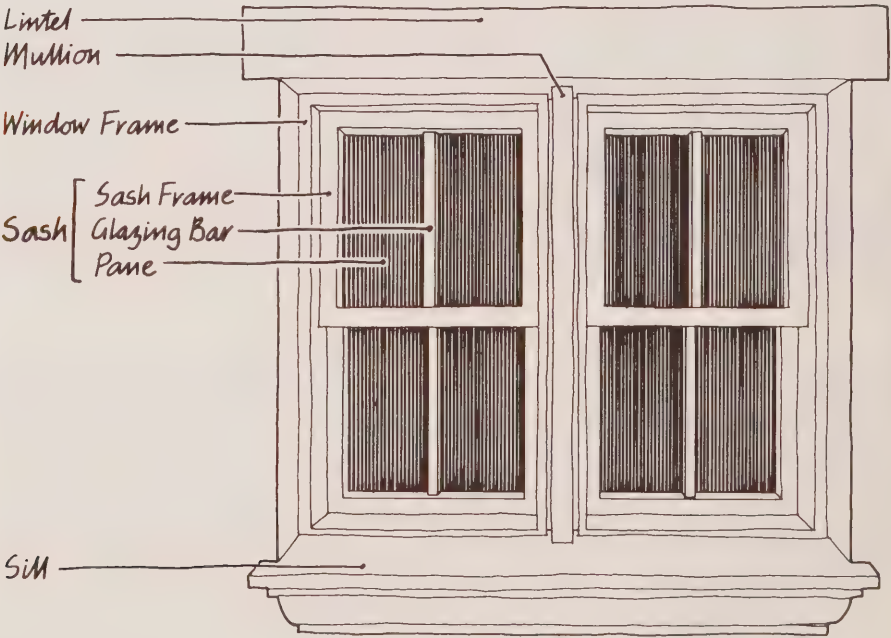 Lintel
Mullion
Window Frame
Sash Frame
Sash
Glazing Bar
Pane
Sill